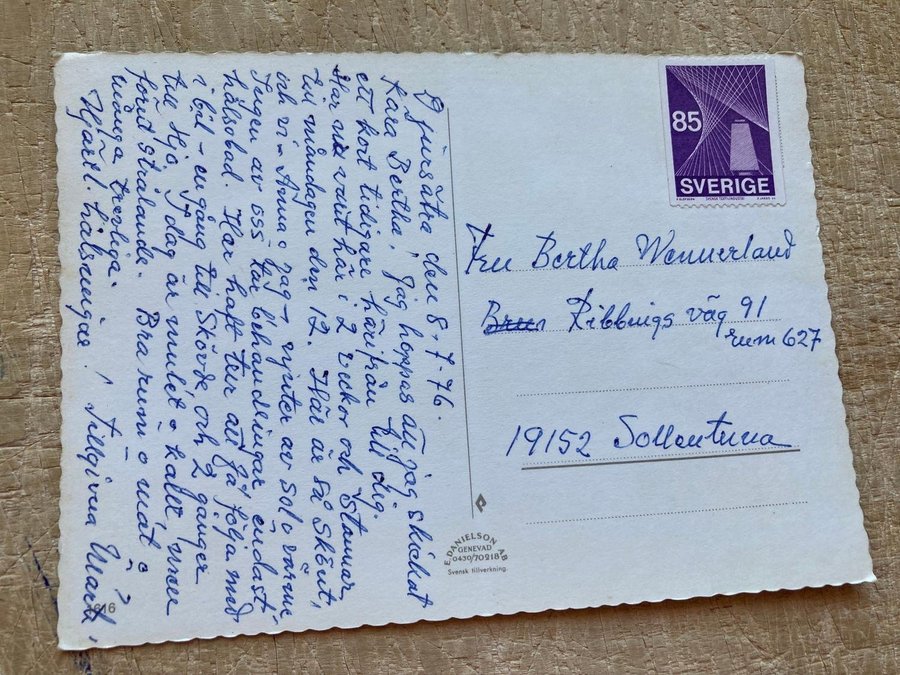 Djursätra den 8-7-76.
Kära Bertha. Jag hoppas att jag skickat
ett kort tidigare härifrån till dig.
Har nu varit här i 2 veckor och stannar
till måndagen den 12. Här är så skönt,
och vi – Anna o jag – njuter av sol o värme.
Ingen av oss har behandlingar endast
hälsobad. Har haft tur att få följa med
i bil – en gång till Skövde och 2 gånger
till Hjo. I dag är mulet o kallt, men
förut strålande. Bra rum o mat o
många trevliga.
Hjärtl. hälsningar! Tillgivna
1616
85
SVERIGE
SVENSK TEXTILINDUSTRI
Fru Bertha Wennerland
Ribbings väg 91
rum 627
19152 Sollentuna
E. DANIELSON AB
GENEVAD
0430/70218
Svensk tillverkning.